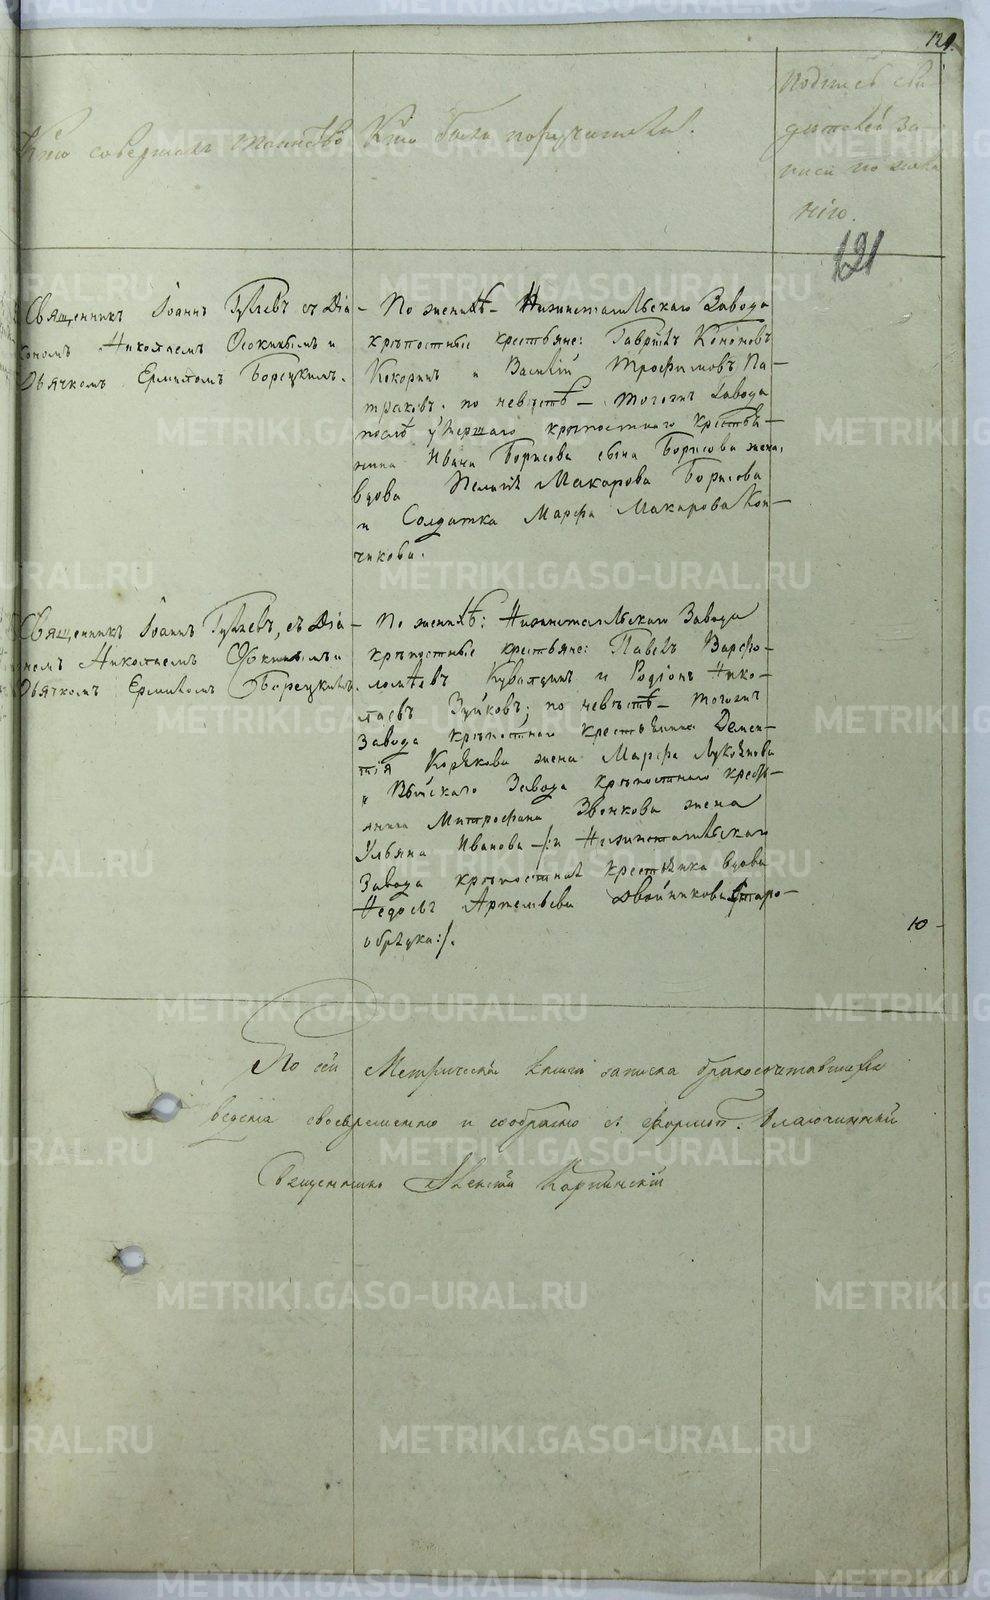 121.
Кто совершалъ таинство
Кто были поручители.
Подпись сви-
дѣтелей за-
писи по жела
нію.
121
Священникъ Іоаннъ Гуляевъ съ Діа-
кономъ Николаемъ Осокинымъ и
Дьячкомъ Ермиломъ Борецкимъ.
По женихѣ – Нижнетагильскаго Завода
крѣпостные крестьяне: Гаврилъ Кононовъ
Кокоринъ и Василій Трофимовъ Па-
траковъ. по невѣстѣ – тогожъ Завода
послѣ умершаго крѣпостнаго крестья-
нина Ивана Борисова сына Борисова жена,
вдова Пелагія Макарова Борисова
и Солдатка Марфа Макарова Кон-
чикова.
Священникъ Іоаннъ Гуляевъ, съ Діа-
номъ Николаемъ Осокинымъ и
Дьячкомъ Ермиломъ Борецкимъ.
По женихѣ: Нижнетагильскаго Завода
крѣпостные крестьяне: Павелъ Варфо-
ломѣевъ и Родіонъ Нико-
лаевъ Зуйковъ; по невѣстѣ – тогожъ
Завода крѣпостнаго крестьянина Демен-
тія Корякова жена Марфа Лукоянова
" Выйскаго Завода крѣпостнаго кресть-
янина Митрофана Звонкова жена
Ульяна Иванова –/: и Нижнетагильскаго
Завода крѣпостная крестьянка вдова
Артемьева Двойникова Старо-
обрядка:/.
10 –
По сей Метрической книги записка бракосочетавшихся
ведена своевременно и сообразно съ формою. Благочинный
Священникъ Алексій Карпинскій
METRIKI.GASO-URAL.RU